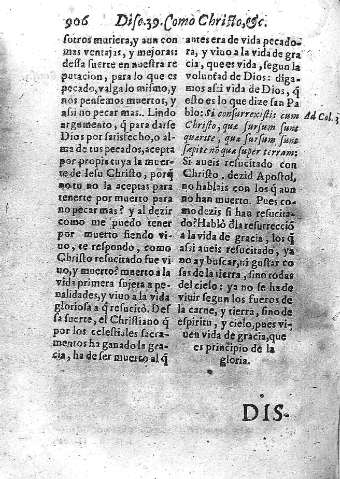 906 Disc. 39. Como Christo, &c.
sotros muriera, y aun con
mas ventajas, y mejoras:
dessa suerte en nuestra re
putacion, para lo que es
pecado, valga lo mismo, y
nos pensemos muertos, y
assi no pecar mas. Lindo
argumento, q̃ para darse
Dios por satisfecho, o al-
ma de tus pecados, accepta
por propia tuya la muer-
te de Iesu Christo, porq̃
no tu no la aceptas para
tenerte por muerto para
no pecar mas? y al dezir
como me puedo tener
por muerto siendo vi-
uo, te respondo, como
Christo resucitado fue vi
uo, y muerto? muerto a la
vida primera sujeta a pe-
nalidades, y viuo a la vida
gloriosa a q̃ resucitò. Des
sa suerte, el Christiano q̃
por los celestiales sacra-
mentos ha ganado la gra-
cia, ha de ser muerto al q̃
antes era de vida pecado-
ra, y viuo a la vida de gra-
cia, que es vida, segun la
voluntad de Dios: diga-
mos assi vida de Dios, q̃
esto es lo que dize san Pa
blo: Si consurrexistis cum
Christo, quæ sursum sunt
quærite, quæ sursum sunt
sapite nõ quæ super terram:
Ad Col. 3
Si aueis resucitado con
Christo, dezid Apostol,
no hablais con los q̃ aun
no han muerto. Pues co-
mo dezis si han resucita-
do? Hablò d̃ la resurrecciõ
a la vida de gracia, los q̃
assi aueis resucitado, ya
no ay buscar, ni gustar co
sas de la tierra, sino todas
del cielo: ya no se ha de
viuir segun los fueros de
la carne, y tierra, sino de
espiritu, y cielo, pues vi-
uen vida de gracia, que
es principio de la
gloria.
DIS-